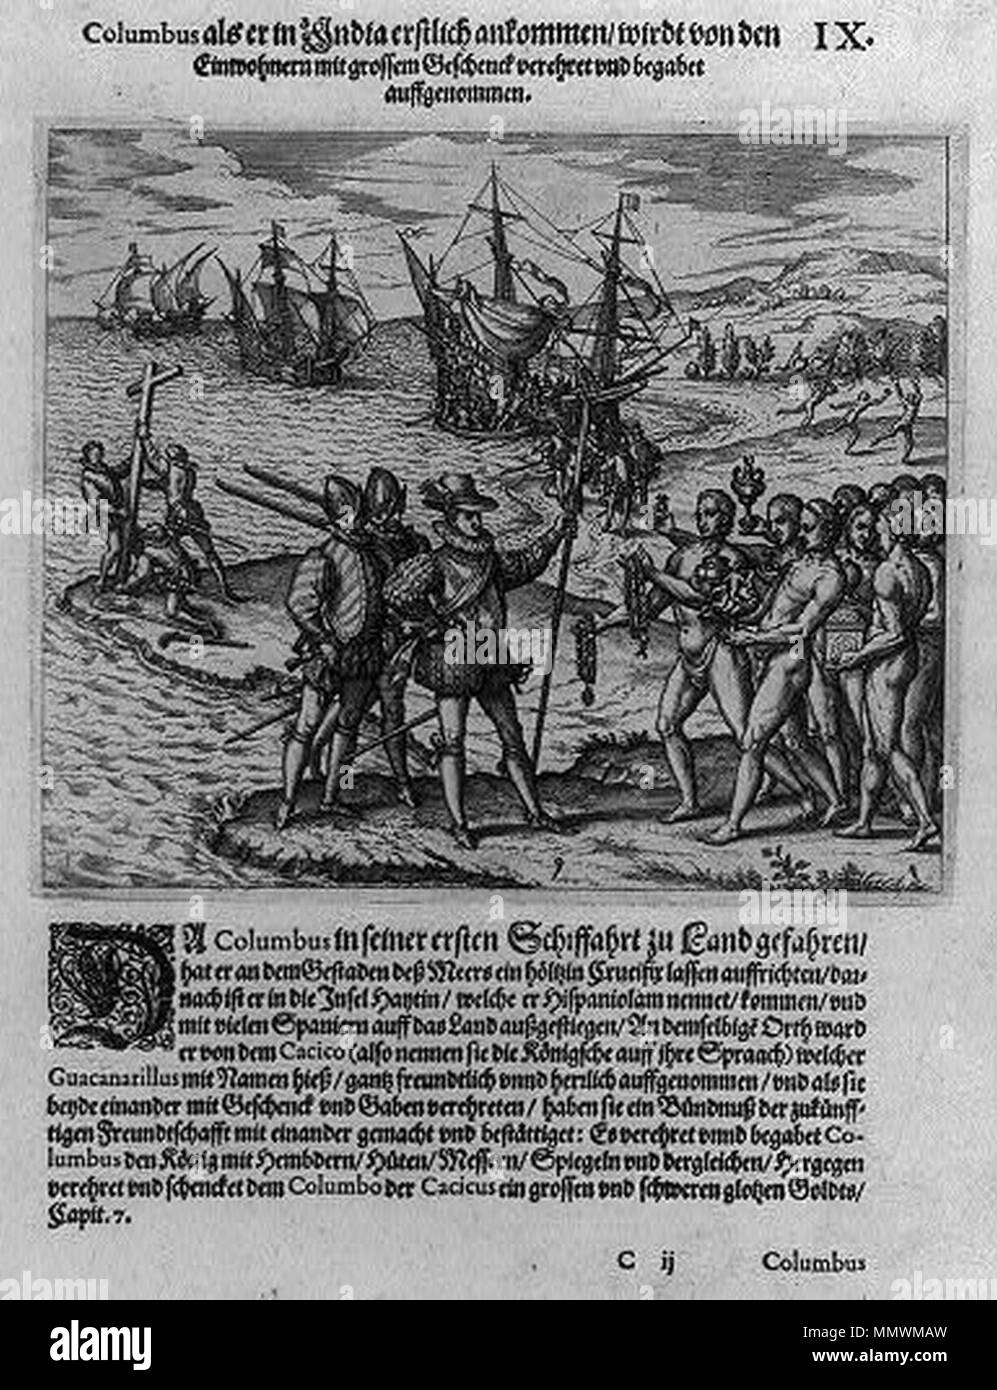 Columbus als er in India erstlich ankommen/ wirdt von den IX.
Einwohnern mit grossem Geschenck verehret vnd begabet
auffgenommen.
9
DA Columbus in seiner ersten Schiffahrt zu Land gefahren/
hat er an dem Gestaden deß Meers ein höltzin Crucifix lassen auffrichten/ dar-
nach ist er in die Insel Haytin/ welche er Hispaniolam nennet/ kommen/ vnd
mit vielen Spaniern auff das Land außgestiegen/ An demselbigē Orth ward
er von dem Cacico (also nennen sie die Königsche auff ihre Spraach) welcher
Guacanarillus mit Namen hieß/ gantz freundtlich vnnd hertzlich auffgenommen/ vnd als sie
beyde einander mit Geschenck vnd Gaben verehreten/ haben sie ein Bündnuß der zukünff-
tigen Freundtschafft mit einander gemacht vnd bestättiget: Es verehret vnnd begabet Co-
lumbus den König mit Hembdern/ Hüten/ Messern/ Spiegeln vnd dergleichen/ Hergegen
verehret vnd schencket dem Columbo der Cacicus ein grossen vnd schweren glotzen Goldts/
Capit. 7.
C ij Columbus
alamy
Image ID: MMWMAW
www.alamy.com